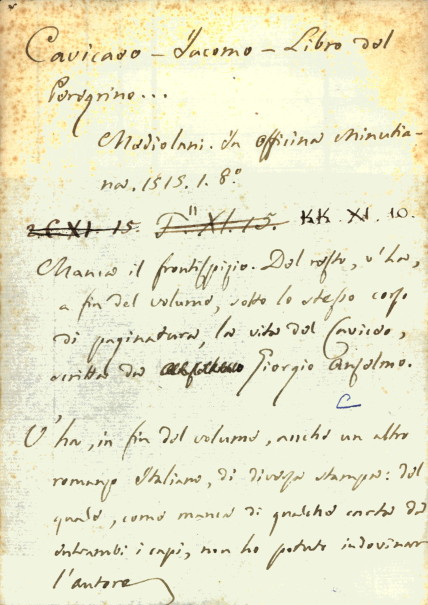 Caviceo - Jacomo - Libro del
Peregrino...
Mediolani. In officina Minutia-
na. 1515. 1. 8º
2. C. XI. 15. F." XI. 15. KK. XI. 10.
Manca il frontispizio. Del resto, v'ha,
a fin del volume, sotto lo stesso corso
di paginatura, la vita del Caviceo,
scritta da Giorgio Anselmo.
C
V'ha, in fin del volume, anche un altro
romanzo Italiano, di diversa stampa: del
quale, come manca di qualche carta da
entrambi i capi, non ho potuto indovinar
l'autore